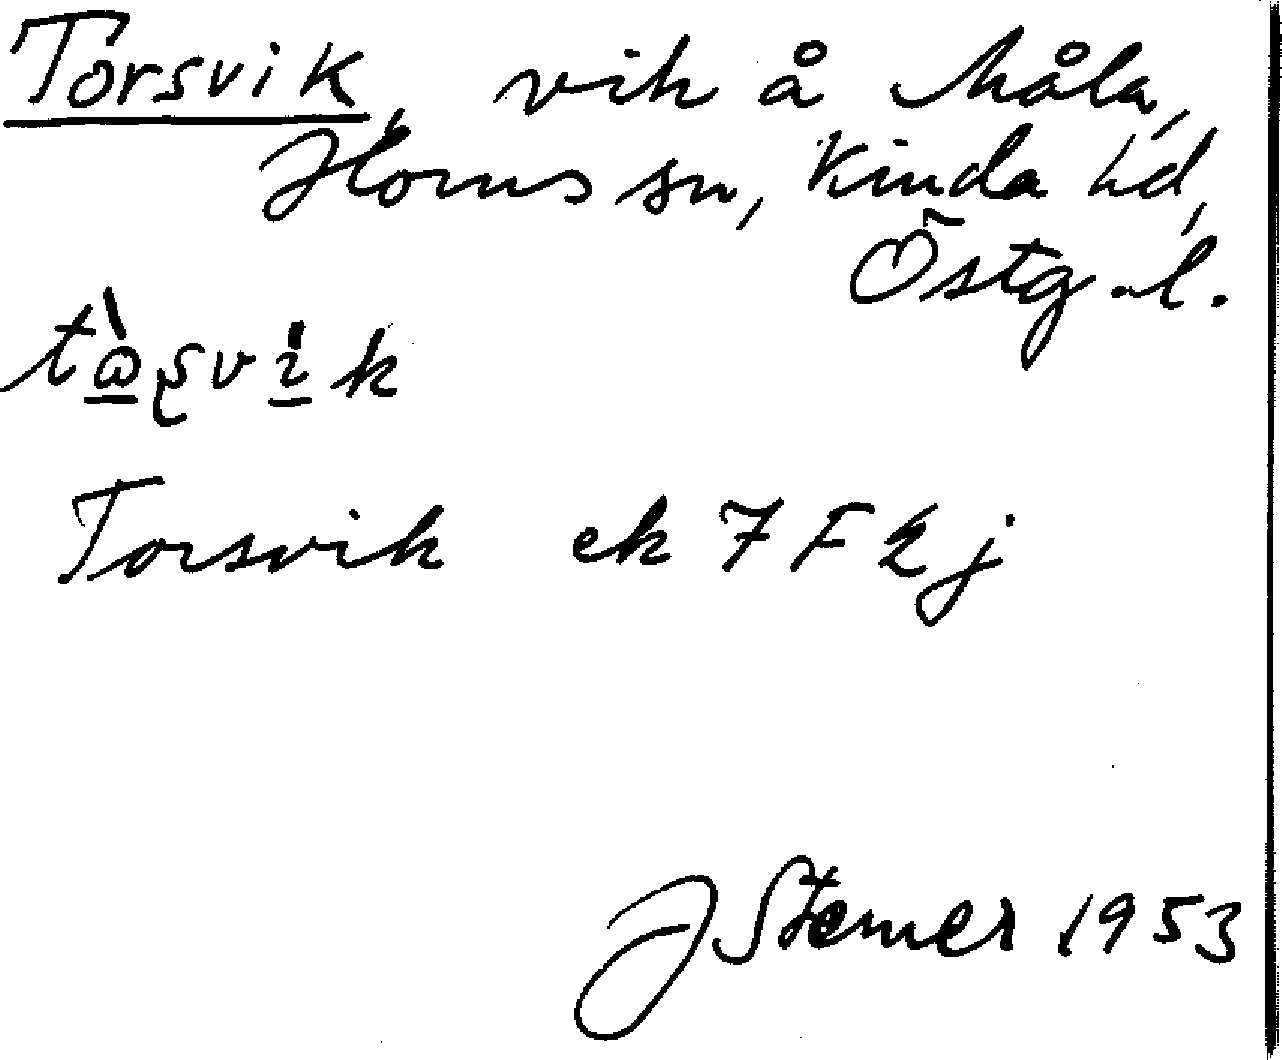 Torsvik, vik å Måla,
Horns sn, Kinda hd,
Östg.l.
tɷ̠̀ʂvi̠k
Torsvik ek 7 F 2 j
J Sterner 1953